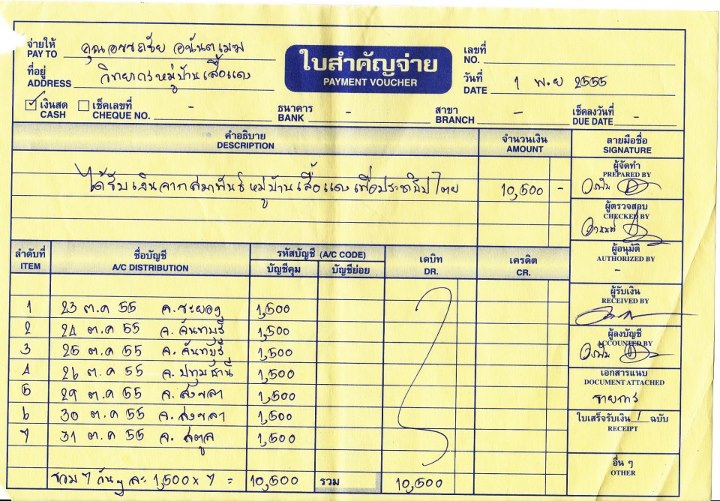 จ่ายให้ PAY TO คุณอรรถชัย อนันตเมฆ
ใบสำคัญจ่าย
PAYMENT VOUCHER
เลขที่ NO.
ที่อยู่ ADDRESS วิทยากรหมู่บ้านเสื้อแดง
วันที่ DATE 1 พ.ย 2555
✓ เงินสด CASH เช็คเลขที่ CHEQUE NO. - ธนาคาร BANK - สาขา BRANCH - เช็คลงวันที่ DUE DATE -
คำอธิบาย DESCRIPTION จำนวนเงิน AMOUNT ลายมือชื่อ SIGNATURE
ได้รับเงินจากสมาพันธ์หมู่บ้านเสื้อแดงเพื่อประชาธิปไตย 10,500 -
ผู้จัดทำ PREPARED BY
ผู้ตรวจสอบ CHECKED BY
ผู้อนุมัติ AUTHORIZED BY
-
ผู้รับเงิน RECEIVED BY
ผู้ลงบัญชี ACCOUNTED BY
เอกสารแนบ DOCUMENT ATTACHED
รายการ
ใบเสร็จรับเงิน 1 ฉบับ RECEIPT
อื่น ๆ OTHER
ลำดับที่ ITEM ชื่อบัญชี A/C DISTRIBUTION รหัสบัญชี (A/C CODE) เดบิท DR. เครดิต CR.
บัญชีคุม บัญชีย่อย
1 23 ต.ค 55 จ.ระยอง 1,500
2 24 ต.ค 55 จ.จันทบุรี 1,500
3 25 ต.ค 55 จ.จันทบุรี 1,500
4 26 ต.ค 55 จ.ปทุมธานี 1,500
5 29 ต.ค 55 จ.สงขลา 1,500
6 30 ต.ค 55 จ.สงขลา 1,500
7 31 ต.ค 55 จ.สตูล 1,500
รวม 7 วันๆ ละ 1,500 x 7 = 10,500 รวม 10,500